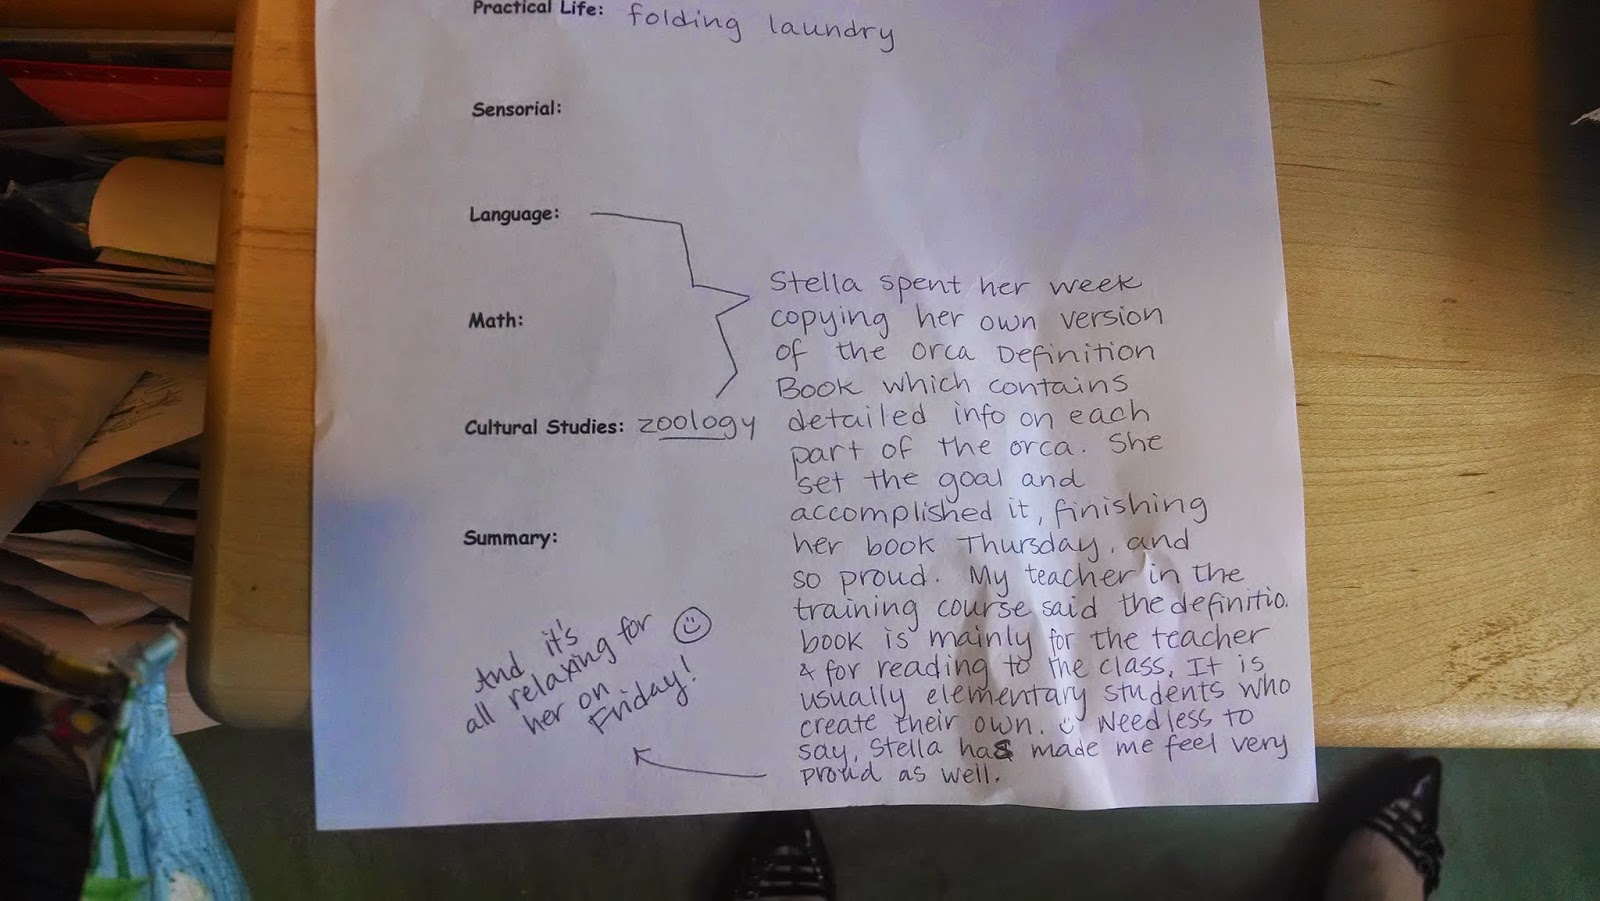 Practical Life: folding laundry
Sensorial:
Language:
Math:
Cultural Studies: zoology
Summary:
Stella spent her week
copying her own version
of the orca Definition
Book which contains
detailed info on each
part of the orca. She
set the goal and
accomplished it, finishing
her book Thursday, and
so proud. My teacher in the
training course said the definitio.
book is mainly for the teacher
& for reading to the class. It is
usually elementary students who
create their own. Needless to
say, Stella has made me feel very
proud as well.
And it's
all relaxing for
her on
Friday!